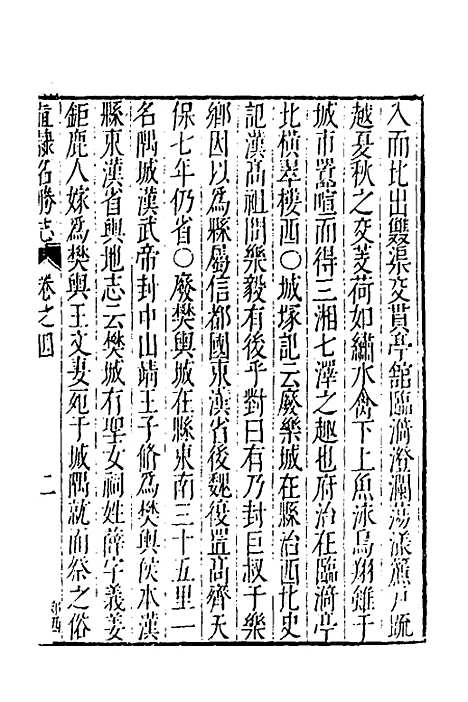 入而北出雙渠交貫亭舘臨漪澄瀾蕩漾簾戸䟽
越夏秋之交芰荷如繡水禽下上魚泳鳥翔雖于
城市嚣喧而得三湘七澤之趣也府治在臨漪亭
北橫翠樓西〇城塚記云廢樂城在縣治西北史
記漢高祖問樂毅有後乎對曰有乃封巨叔于樂
鄉因以爲縣屬信都國東漢省後魏復置高齊天
保七年仍省〇廢樊輿城在縣東南三十五里一
名隅城漢武帝封中山靖王子脩爲樊輿侯本漢
縣東漢省輿地志云樊城有聖女祠姓薛字義姜
鉅鹿人嫁爲樊輿王文妻死于城隅就而祭之俗
直隸名勝志 卷之四 二